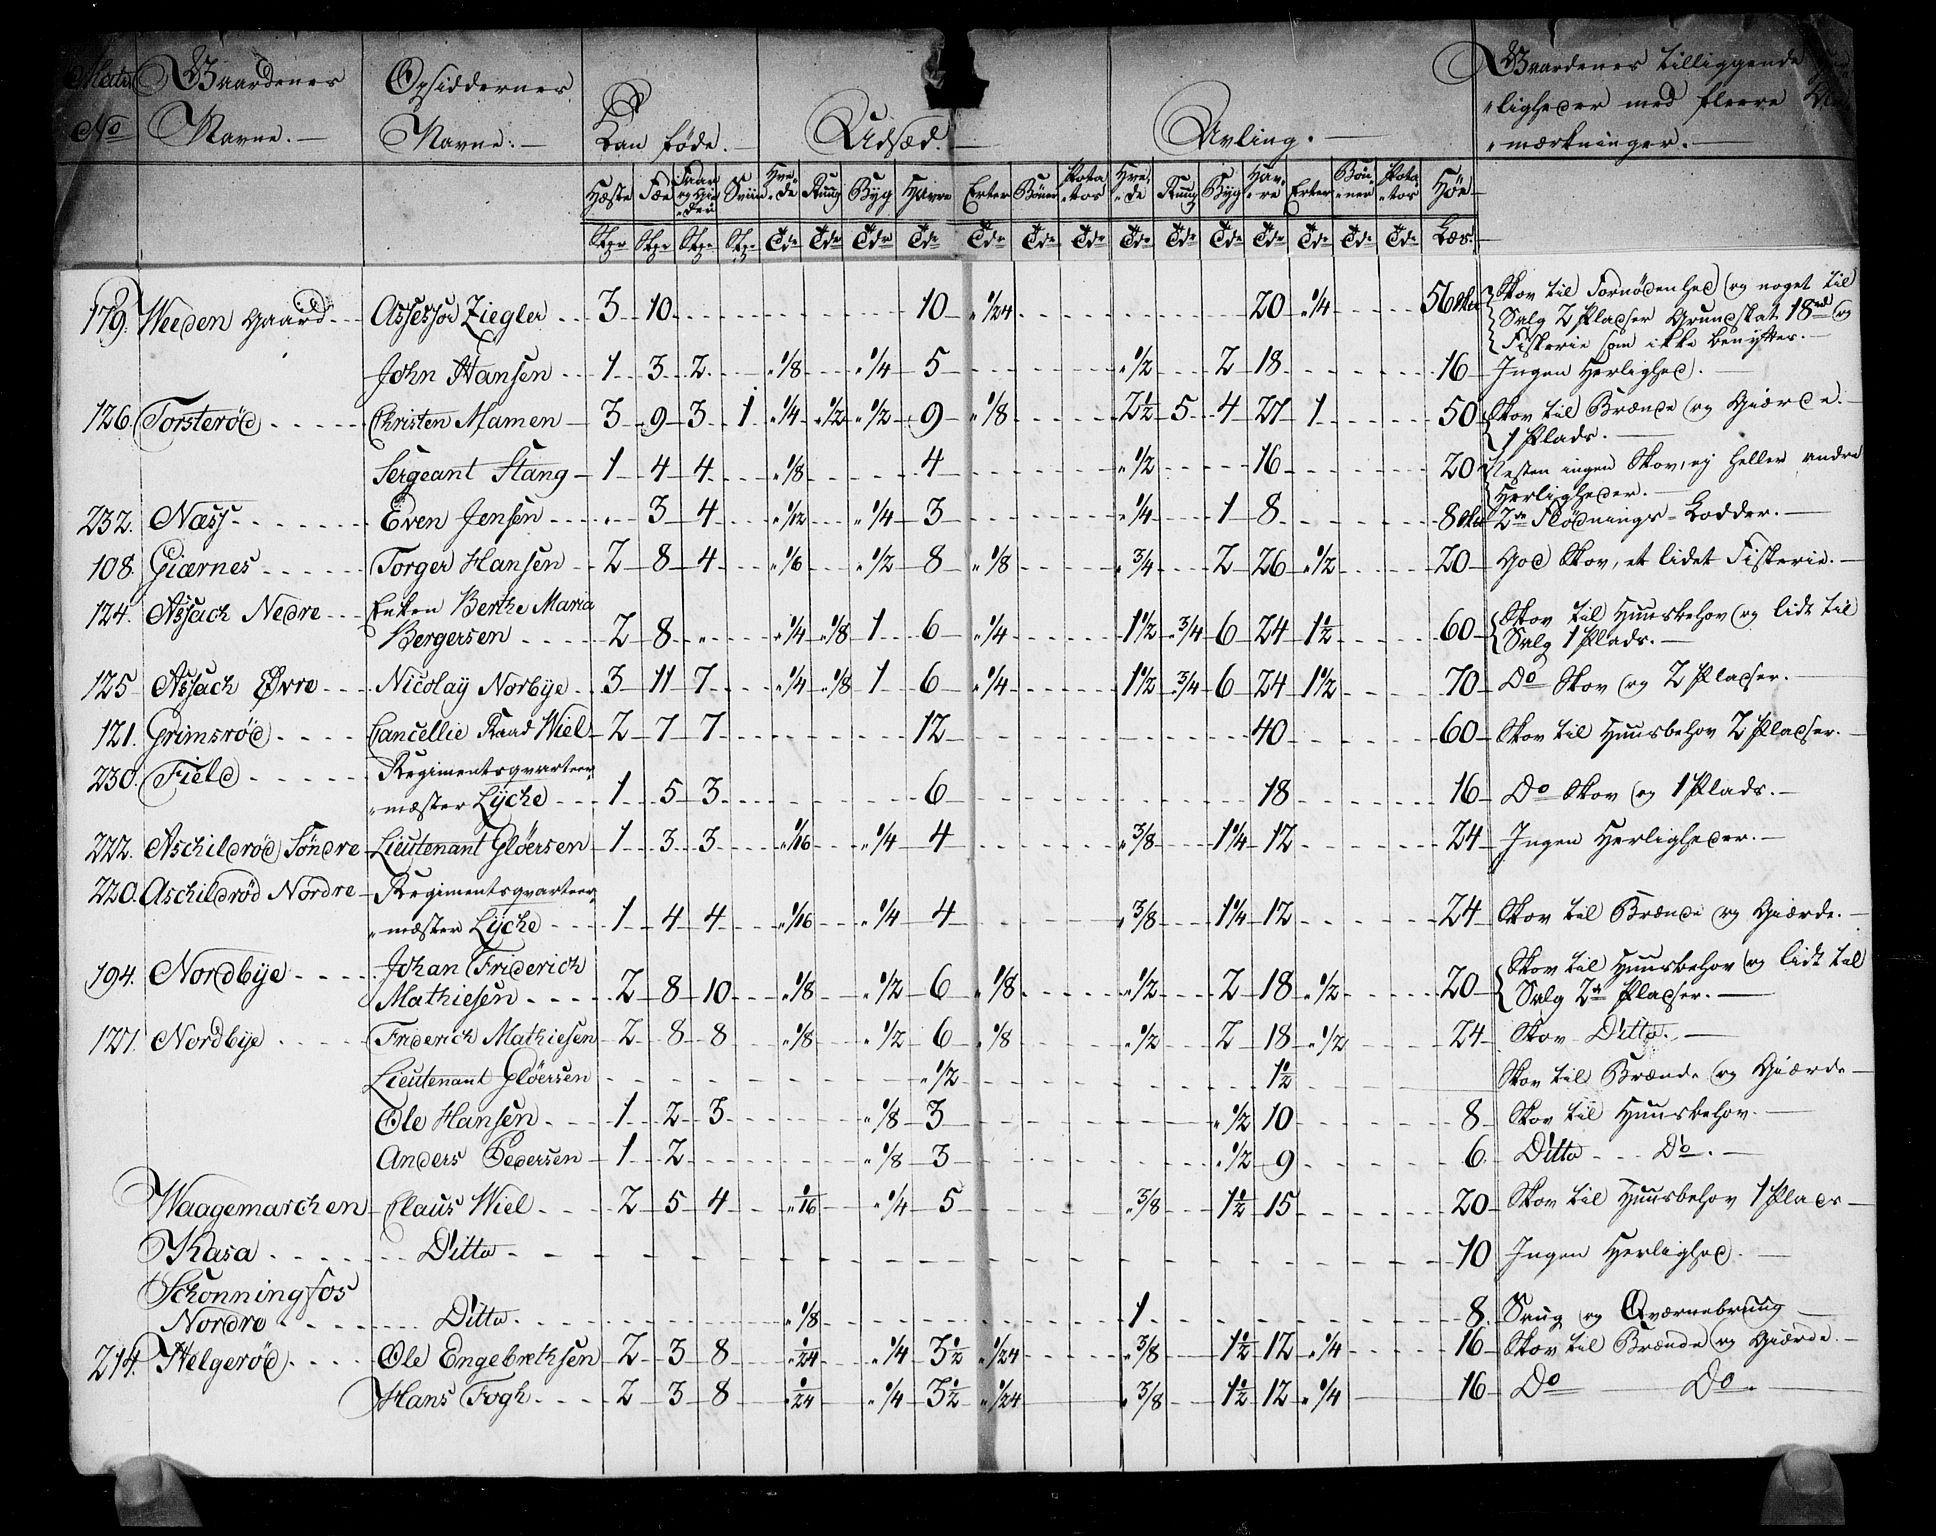 Matr Gaardenes Opsiddernes Gaardenes tilliggende
No Navne. Navne. Kan føde. Udsæd. Avling. "ligheder med fleere
"mærkninger.
Hæste Fæe Faar og Gieder Sviin Hve"de Rug Byg Havre Erter Bönner Pota"tos Hve"de Rug Byg Hav"re Erter Bön"ner Pota"tos Høe
Stkr Stkr Stkr Stkr Tdr Tdr Tdr Tdr Tdr Tdr Tdr Tdr Tdr Tdr Tdr Tdr Tdr Tdr Læs.
179. Weeden Gaard Assessor Ziegler 3 10 10 " 1/24 20 " 1/4 56 Skov til Fornødenhed og noget til
Salg 2 Pladser Grundskat 18 og
Fiskerie som ikke benyttes.
John Hansen 1 3 2 " 1/8 " 1/4 5 " 1/2 2 18 16 Ingen Herlighed.
126. Torsterød Christen Mamen 3 9 3 1 " 1/4 " 1/2 " 1/2 9 " 1/8 2 1/2 5 4 27 1 50 Skov til Brænde og Giærde.
1 Plads.
Sergeant Stang 1 4 4 " 1/8 4 " 1/2 16 20 Næsten ingen Skov, ej heller andre
Herligheder.
232. Næss Even Jensen " 3 4 " 1/12 " 1/4 3 " 1/4 1 8 8 2de Flødnings-Lodder.
108. Giærnes Torger Hansen 2 8 4 " 1/6 " 1/2 8 " 1/8 " 3/4 2 26 " 1/2 20 God Skov, et lidet Fiskerie.
124. Assach Nedre Enken Berthe Maria
Bergersen 2 8 " " 1/4 " 1/8 1 6 " 1/4 1 1/2 " 3/4 6 24 1 1/2 60 Skov til Huusbehov og lidt til
Salg 1 Plads.
125 Assach Øvre Nicolay Norbye 3 11 7 " 1/4 " 1/8 1 6 " 1/4 1 1/2 " 3/4 6 24 1 1/2 70 Do Skov og 2 Pladser.
121. Grimsrød Cancellie Raad Wiel 2 7 7 12 40 60 Skov til Huusbehov 2 Pladser.
230. Field Regimentsqvarteer
"mæster Lyche 1 5 3 6 18 16 Do Skov og 1 Plads.
222. Aschildrød Söndre Lieutenant Gløersen 1 3 3 " 1/16 " 1/4 4 " 3/8 1 1/4 12 24 Ingen Herligheder.
220. Aschildrød Nordre Regimentsqvarteer
"mæster Lyche 1 4 4 " 1/16 " 1/4 4 " 3/8 1 1/4 12 24 Skov til Brænde og Giærde.
194. Nordbye Johan Friderich
Mathiesen 2 8 10 " 1/8 " 1/2 6 " 1/8 " 1/2 2 18 " 1/2 20 Skov til Huusbehov og lidt til
Salg 2de Pladser.
127. Nordbye Friderich Mathiesen 2 8 8 " 1/8 " 1/2 6 " 1/8 " 1/2 2 18 " 1/2 24 Skov Ditto.
Lieutenant Gløersen " 1/2 1 1/2 Skov til Brænde og Giærde
Ole Hansen 1 2 3 " 1/8 3 " 1/2 10 8 Skov til Huusbehov.
Anders Pedersen 1 2 " 1/8 3 " 1/2 9 6 Ditto Do.
Waagemarchen Claus Wiel 2 5 4 " 1/16 " 1/4 5 " 3/8 1 1/2 15 20 Skov til Huusbehov 1 Plads
Kasa Ditto 10 Ingen Herlighed.
Schonningfos
Nordre Ditto " 1/8 1 8. Saug og Qværnebruug
214. Helgerød Ole Engebrethsen 2 3 8 " 1/24 " 1/4 3 1/2 " 1/24 " 3/8 1 1/2 12 " 1/4 16 Skov til Brænde og Giærde.
Hans Fogh 2 3 8 " 1/24 " 1/4 3 1/2 " 1/24 " 3/8 1 1/2 12 " 1/4 16 Do Do.